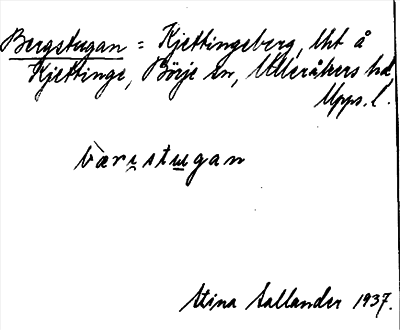 Bergstugan = Kjettingeberg, lht å
Kjettinge, Börje sn, Ulleråkers hd,
Upps. l.
bæristugan
Stina Sallander 1937.